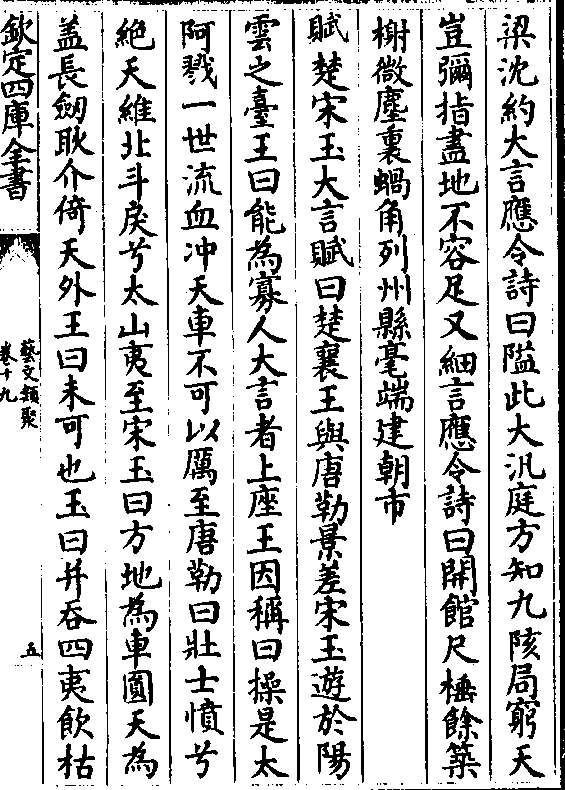 梁沈約大言應令詩曰隘此大汎庭方知九陔局窮天
豈彌指盡地不容足又細言應令詩曰開館尺棰餘築
榭微塵裏蝸角列州縣毫端建朝市
賦楚宋玉大言賦曰楚襄王與唐勒景差宋玉遊於陽
雲之臺王曰能為寡人大言者上座王因稱曰操是太
阿戮一世流血冲天車不可以厲至唐勒曰壯士憤兮
絶天維北斗戾兮太山夷至宋玉曰方地為車圓天為
盖長劒耿介倚天外王曰未可也玉曰并吞四夷飲枯
欽定四庫全書
藝文類聚
卷十九
五